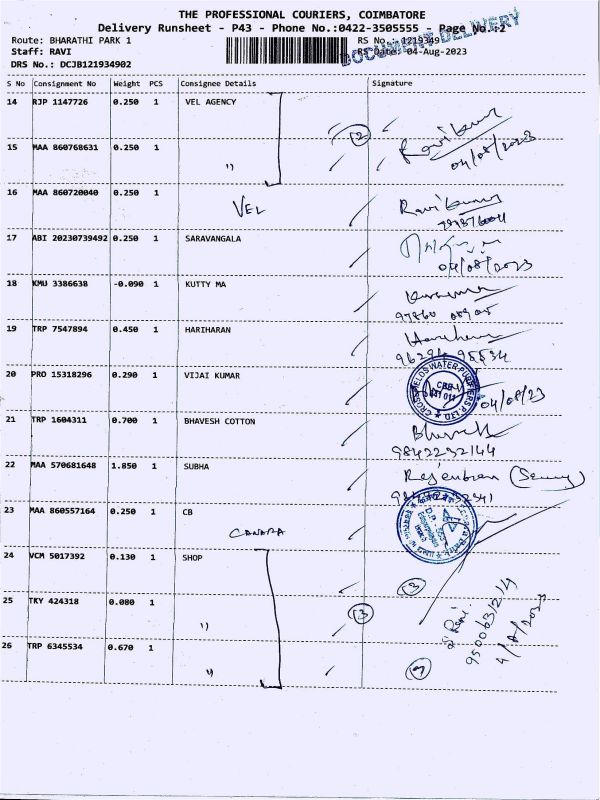 THE PROFESSIONAL COURIERS, COIMBATORE
Delivery Runsheet - P43 - Phone No.:0422-3505555 - Page No.:2
DOCUMENT DELIVERY
Route: BHARATHI PARK 1
RS No.: 1219349
Staff: RAVI
RS Date: 04-Aug-2023
DRS No.: DCJB121934902
S No Consignment No Weight PCS Consignee Details Signature
14 RJP 1147726 0.250 1 VEL AGENCY
(2) Ravikumar
04/08/2023
15 MAA 860768631 0.250 1 "
16 MAA 860720040 0.250 1 VEL
Ravikumar
17 ABI 20230739492 0.250 1 SARAVANGALA
04/08/2023
18 KMU 3386638 -0.090 1 KUTTY MA
19 TRP 7547894 0.450 1 HARIHARAN
20 PRO 15318296 0.290 1 VIJAI KUMAR
CROSSFIELDS WATER PURIFIERS P. LTD
04/08/23
21 TRP 1604311 0.700 1 BHAVESH COTTON
9842232144
22 MAA 570681648 1.850 1 SUBHA
23 MAA 860557164 0.250 1 CB
CANARA
24 VCM 5017392 0.130 1 SHOP
(3)
25 TKY 424318 0.080 1 "
(3)
26 TRP 6345534 0.670 1 "